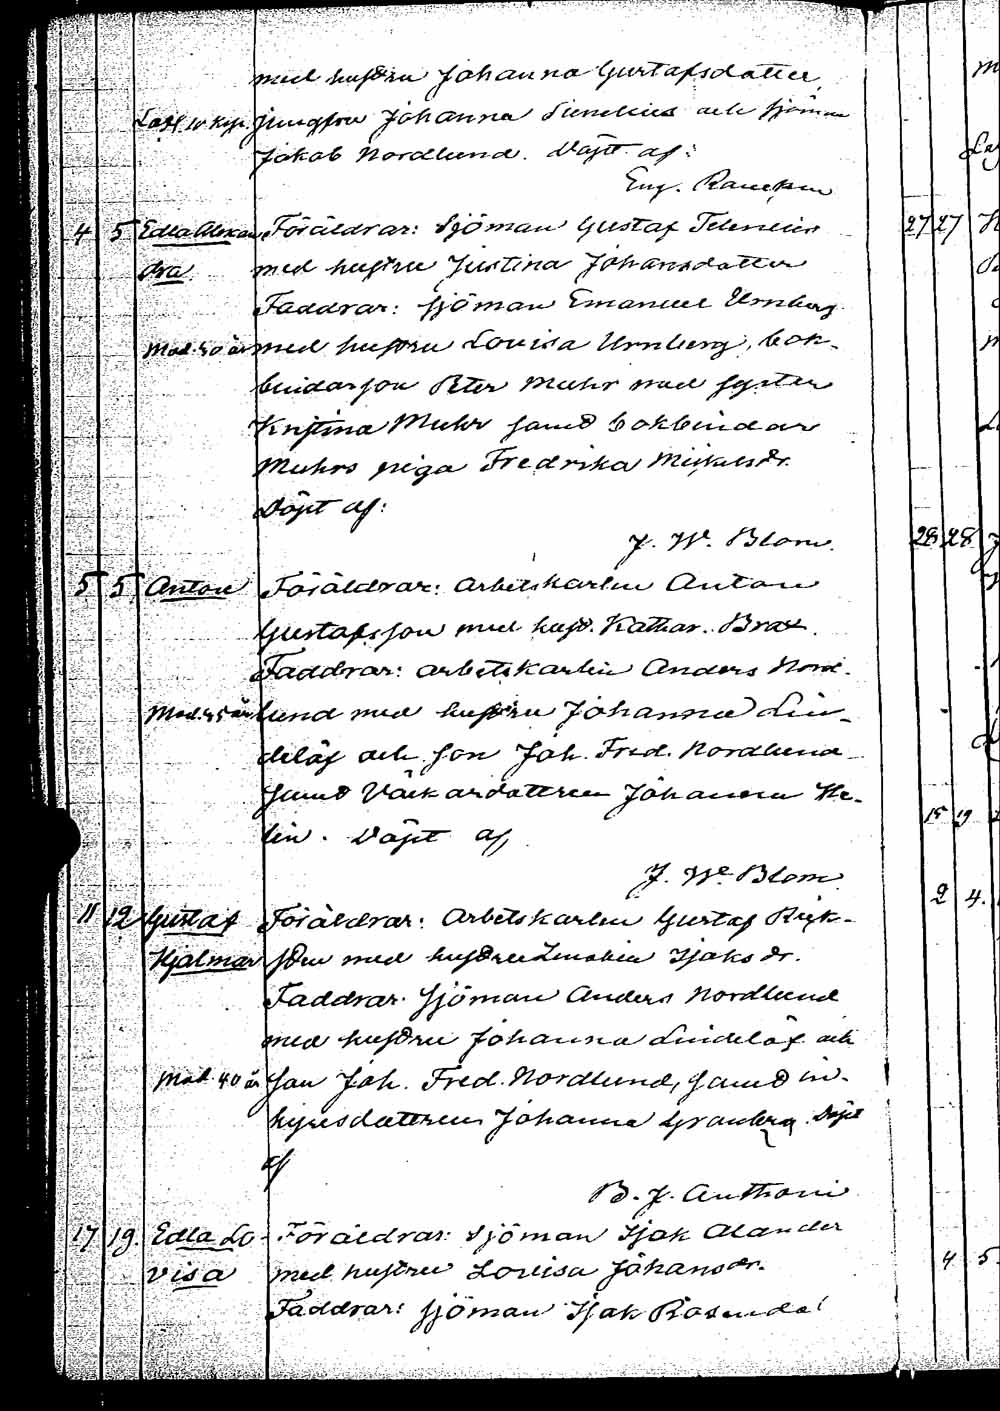 med hustru Johanna Gustafsdotter
jungfru Johanna och sjöman
Jakob Nordlund. Döpt af:
Eug. Rancken
4 5 Edla Alexan Föräldrar: Sjöman Gustaf
dra med hustru Justina Johansdotter
Faddrar: sjöman Emanuel Urnberg
Mod. 40 år med hustru Lovisa Urnberg, bok-
bindarson Peter Muhr med syster
Kristina Muhr samt bokbindar
Muhrs piga Fredrika Mickelsdr.
Döpt af:
J. W. Blom.
5 5 Anton Föräldrar: Arbetskarlen Anton
Gustafsson med hust. Kathar. Brax.
Faddrar: arbetskarlen Anders Nord-
Mod. 45 år lund med hustru Johanna Lin-
delöf och son Joh. Fred. Nordlund
samt Johanna He-
lin. Döpt af
J. W. Blom
11 12 Gustaf Föräldrar: Arbetskarlen Gustaf
Hjalmar med hustru Isaksdr.
Faddrar: Sjöman Anders Nordlund
med hustru Johanna Lindelöf och
Mod. 40 år son Joh. Fred. Nordlund, samt in-
hysesdottren Johanna Granberg. Döpt
af
B. J. Anthoni
17 19. Edla Lo- Föräldrar: Sjöman Isak Alander
visa med hustru Lovisa Johansdr.
Faddrar: sjöman Isak Rosendal
27 27
28 28
15 19
2 4.
4 5.